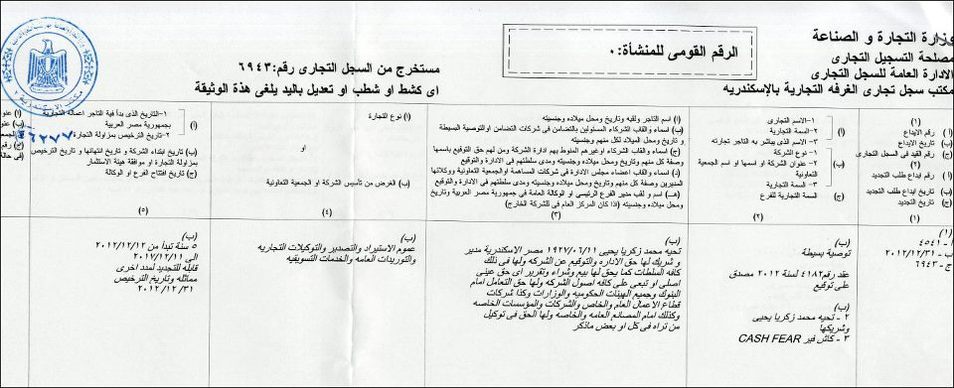 وزارة التجارة و الصناعة
مصلحة التسجيل التجارى
الادارة العامة للسجل التجارى
مكتب سجل تجارى الغرفه التجارية بالإسكندريه
الرقم القومى للمنشأة: ٠
مستخرج من السجل التجارى رقم: ٦٩٤٣
اى كشط او شطب او تعديل باليد يلغى هذة الوثيقة
(١)
(أ) رقم الايداع
(ب) تاريخ الإيداع
(ج) رقم القيد فى السجل التجارى
(٢)
(أ) رقم ايداع طلب التجديد
(ب) تاريخ ايداع طلب التجديد
(ج) تاريخ التجديد
(١)
(أ) ١- الاسم التجارى
٢- السمة التجارية
٣- الاسم الذى يباشر به التاجر تجارته
(ب) ١- نوع الشركة
٢- عنوان الشركة او اسمها او اسم الجمعية
التعاونية
٣- السمة التجارية
(ج) السمة التجارية للفرع
(٢)
(أ) اسم التاجر ولقبه وتاريخ ومحل ميلاده وجنسيته
(ب) اسماء و القاب الشركاء المسئولين بالتضامن فى شركات التضامن اوالتوصية البسيطة
و تاريخ ومحل الميلاد لكل منهم وجنسيته
(ج) اسماء و القاب الشركاء اوغيرهم المنوط بهم ادارة الشركة ومن لهم حق التوقيع باسمها
وصفة كل منهم وتاريخ ومحل ميلاده وجنسيته ومدى سلطتهم فى الادارة والتوقيع
(د) اسماء والقاب اعضاء مجلس الادارة فى شركات المساهمة اوالجمعية التعاونية ووكلائها
المديرين وصفة كل منهم وتاريخ ومحل ميلاده وجنسيته ومدى سلطتهم فى الادارة والتوقيع
(هـ) اسم و لقب مدير الفرع الرئيسى او الوكالة العامة فى جمهورية مصر العربية وتاريخ
ومحل ميلاده وجنسيته (اذا كان المركز العام فى للشركة الخارج)
(٣)
(أ) نوع التجارة
او
(ب) الغرض من تأسيس الشركة او الجمعية التعاونية
(٤)
(أ) ١- التاريخ الذى بدأ فية التاجر اعماله التجارية
بجمهورية مصر العربية
٢- تاريخ الترخيص بمزاولة التجارة
(ب) تاريخ ابتداء الشركة و تاريخ انتهائها و تاريخ الترخيص
بمزاولة التجارة او موافقة هيئة الاستثمار
(ج) تاريخ افتتاح الفرع او الوكالة
(٥)
(١)
أ - ٤٥٤١
ب - ٢٠١٢/١٢/٣١
ج - ٦٩٤٣
(ب)
توصية بسيطة
عقد رقم ٤١٨٢ لسنة ٢٠١٢ مصدق
على توقيع
(ب)
٢ - تحيه محمد زكريا يحيى
وشريكها
٣ - كاش فير CASH FEAR
(ب)
تحيه محمد زكريا يحيى ١٩٢٧/٠٦/١١ مصر الاسكندرية مدير
و شريك لها حق الاداره والتوقيع عن الشركه ولها فى ذلك
كافه السلطات كما يحق لها بيع وشراء وتقرير اى حق عينى
اصلى او تبعى على كافه اصول الشركه ولها حق التعامل امام
البنوك وجميع الهيئات الحكوميه والوزارات وكذا شركات
قطاع الاعمال العام والخاص والشركات والمؤسسات الخاصه
وكذلك امام المصانع العامه والخاصه ولها الحق فى توكيل
من تراه فى كل او بعض ماذكر
(ب)
عموم الاستيراد والتصدير والتوكيلات التجاريه
والتوريدات العامه والخدمات التسويقيه
(ب)
٥ سنة تبدأ من ٢٠١٢/١٢/١٢
الى ٢٠١٧/١٢/١١
قابله للتجديد لمدد اخرى
مماثله وتاريخ الترخيص
٢٠١٢/١٢/٣١